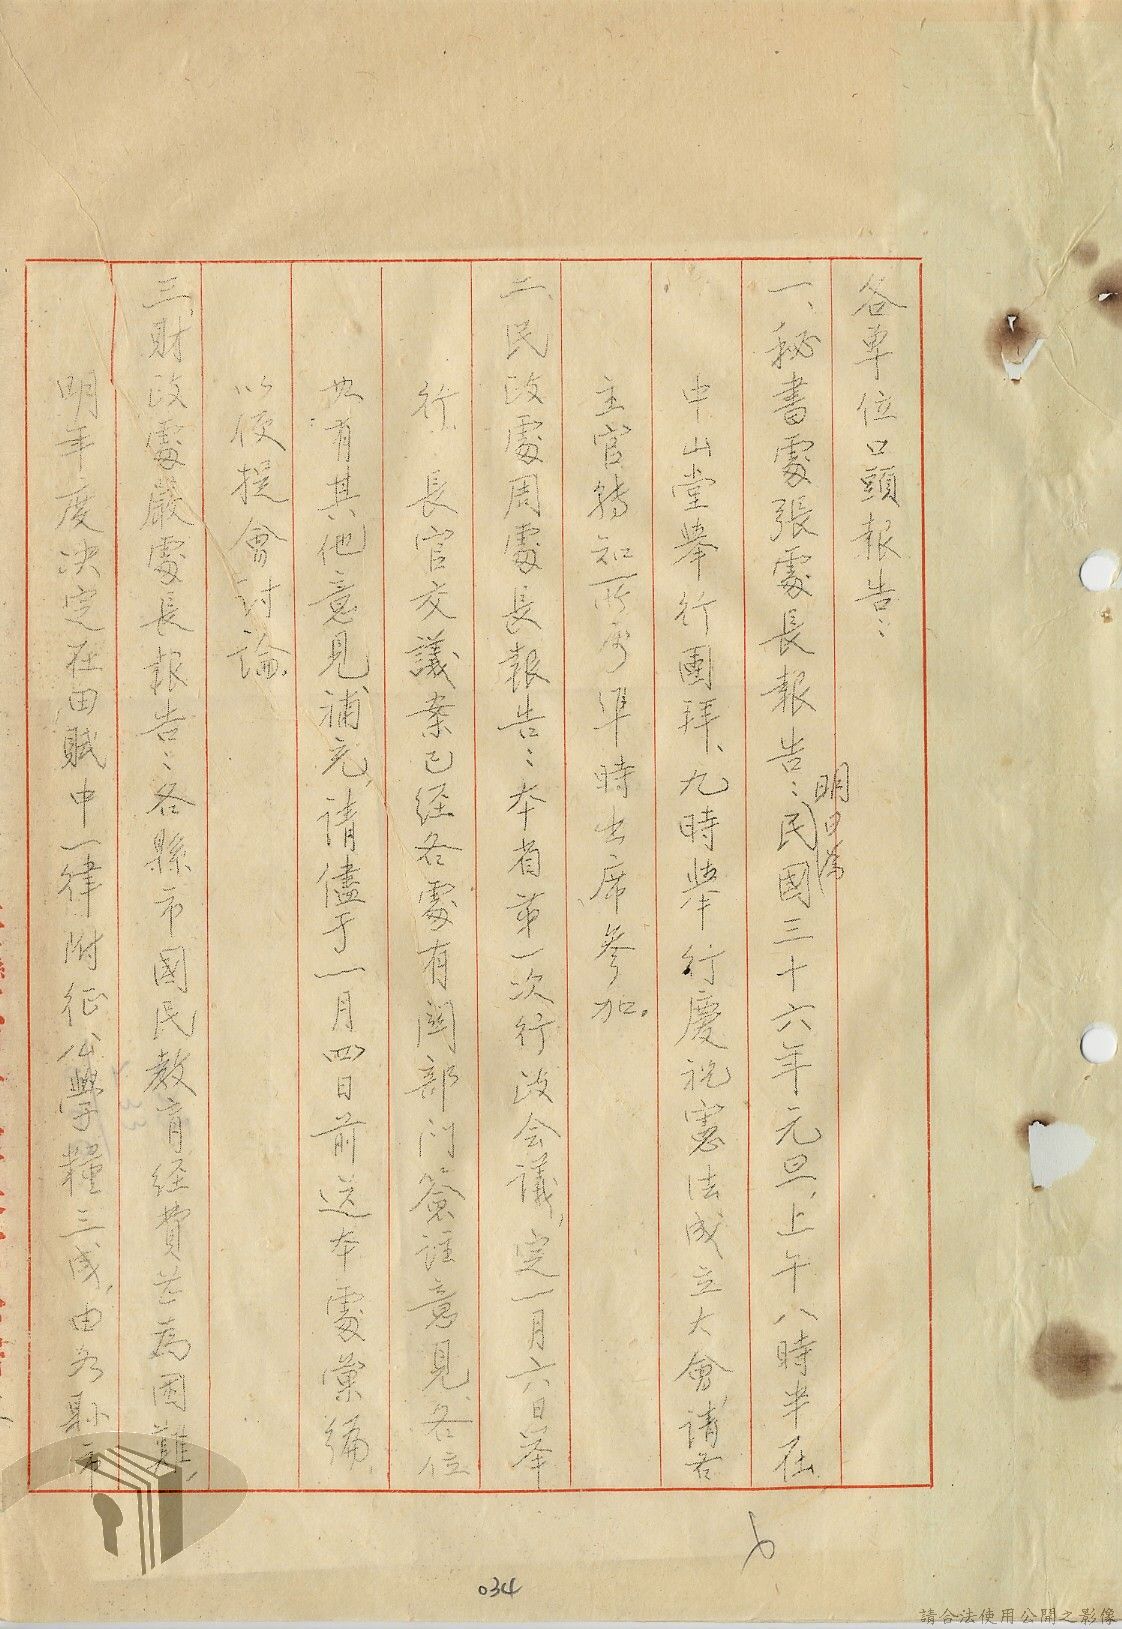 各單位口頭報告：
一、秘書處張處長報告：明日為民國三十六年元旦，上午八時半在
中山堂舉行團拜、九時舉行慶祝憲法成立大會，請各
主官轉知所屬準時出席參加。
二、民政處周處長報告：本省第一次行政会議，定一月六日举
行，長官交議案已經各處有関部门簽註意見，各位
如有其他意見補充，請儘于一月四日前送本處彙編，
以便提會討論。
三、財政處嚴處長報告：各縣市國民教育經費甚為困難，
明年度決定在田賦中一律附征公學糧三成，由各縣市
034
請合法使用公開之影像